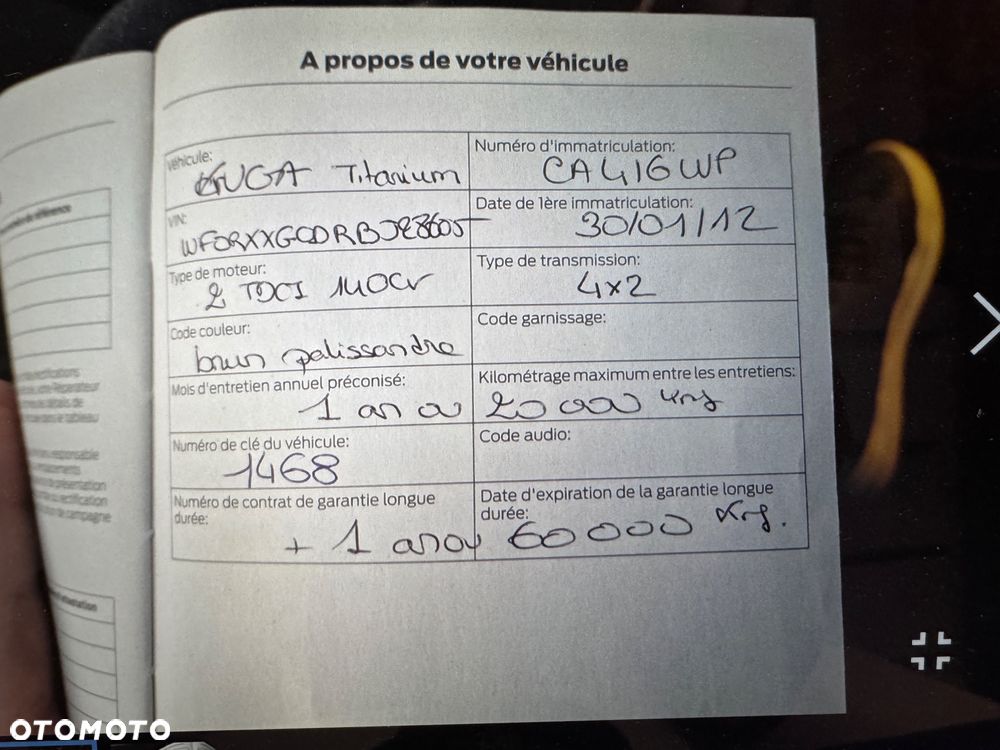 A propos de votre véhicule
Véhicule:
KUGA Titanium
Numéro d'immatriculation:
CA416WP
VIN:
WF0RXXGCDRBJ28605
Date de 1ère immatriculation:
30/01/12
Type de moteur:
2 TDCI 140cv
Type de transmission:
4x2
Code couleur:
brun palissandre
Code garnissage:
Mois d'entretien annuel préconisé:
1 an ou
Kilométrage maximum entre les entretiens:
20 000 Kms
Numéro de clé du véhicule:
1468
Code audio:
Numéro de contrat de garantie longue
durée:
+ 1 an ou
Date d'expiration de la garantie longue
durée:
60 000 Kms.
OTOMOTO